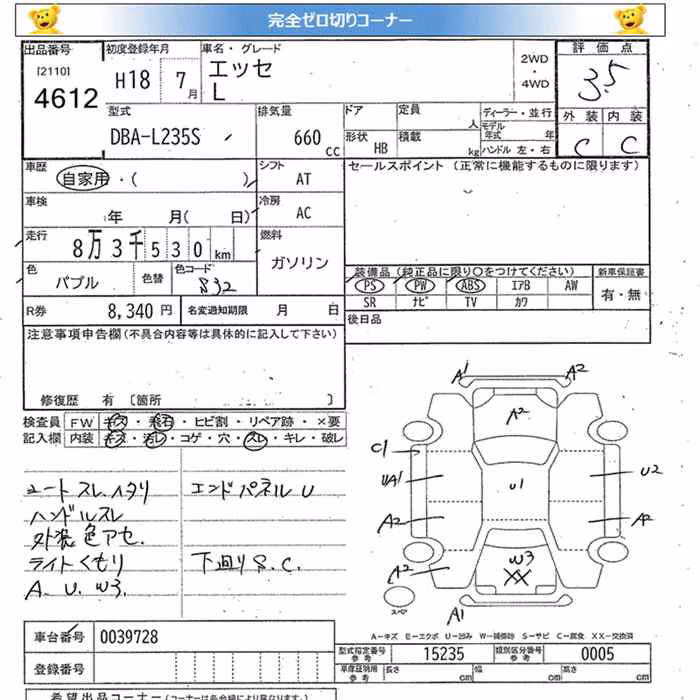 完全ゼロ切りコーナー
出品番号 初度登録年月 車名・グレード 評価点
[2110] 4612 H18 7月 エッセ L 2WD・4WD 3.5
型式 排気量 ドア 定員 人 ディーラー・並行 外装 内装
DBA-L235S 660cc 形状 HB 積載 kg モデル年式 年 ハンドル 左・右 C C
車歴 シフト セールスポイント (正常に機能するものに限ります)
自家用・( ) AT
車検 冷房
年 月( 日) AC
走行 燃料
8万3千530km ガソリン
色 色替 色コード 装備品(純正品に限り○をつけてください) 新車保証書
パブル S32 PS PW ABS エアB AW 有・無
SR ナビ TV カワ
R券 8,340円 名変通知期限 月 日 後日品
注意事項申告欄(不具合内容等は具体的に記入して下さい)
修復歴 有 〔箇所 〕
検査員 FW キズ・飛石・ヒビ割・リペア跡・×要
記入欄 内装 キズ・汚レ・コゲ・穴・スレ・キレ・破レ
A1 A2
A2
C1
UA1 U1 U2
A2 A2
A2 W3 XX
スペア A1
シートスレ、ヘタリ エンドパネル U
ハンドルスレ
外装 色アセ.
ライトくもり 下回り S.C.
A. U. W3.
A-キズ E-エクボ U-凹み W-補修跡 S-サビ C-腐食 XX-交換済
車台番号 0039728
型式指定番号 参考 15235 類別区分番号 参考 0005
登録番号
車庫証明用 参考 長さ cm 幅 cm 高さ cm
希望出品コーナー